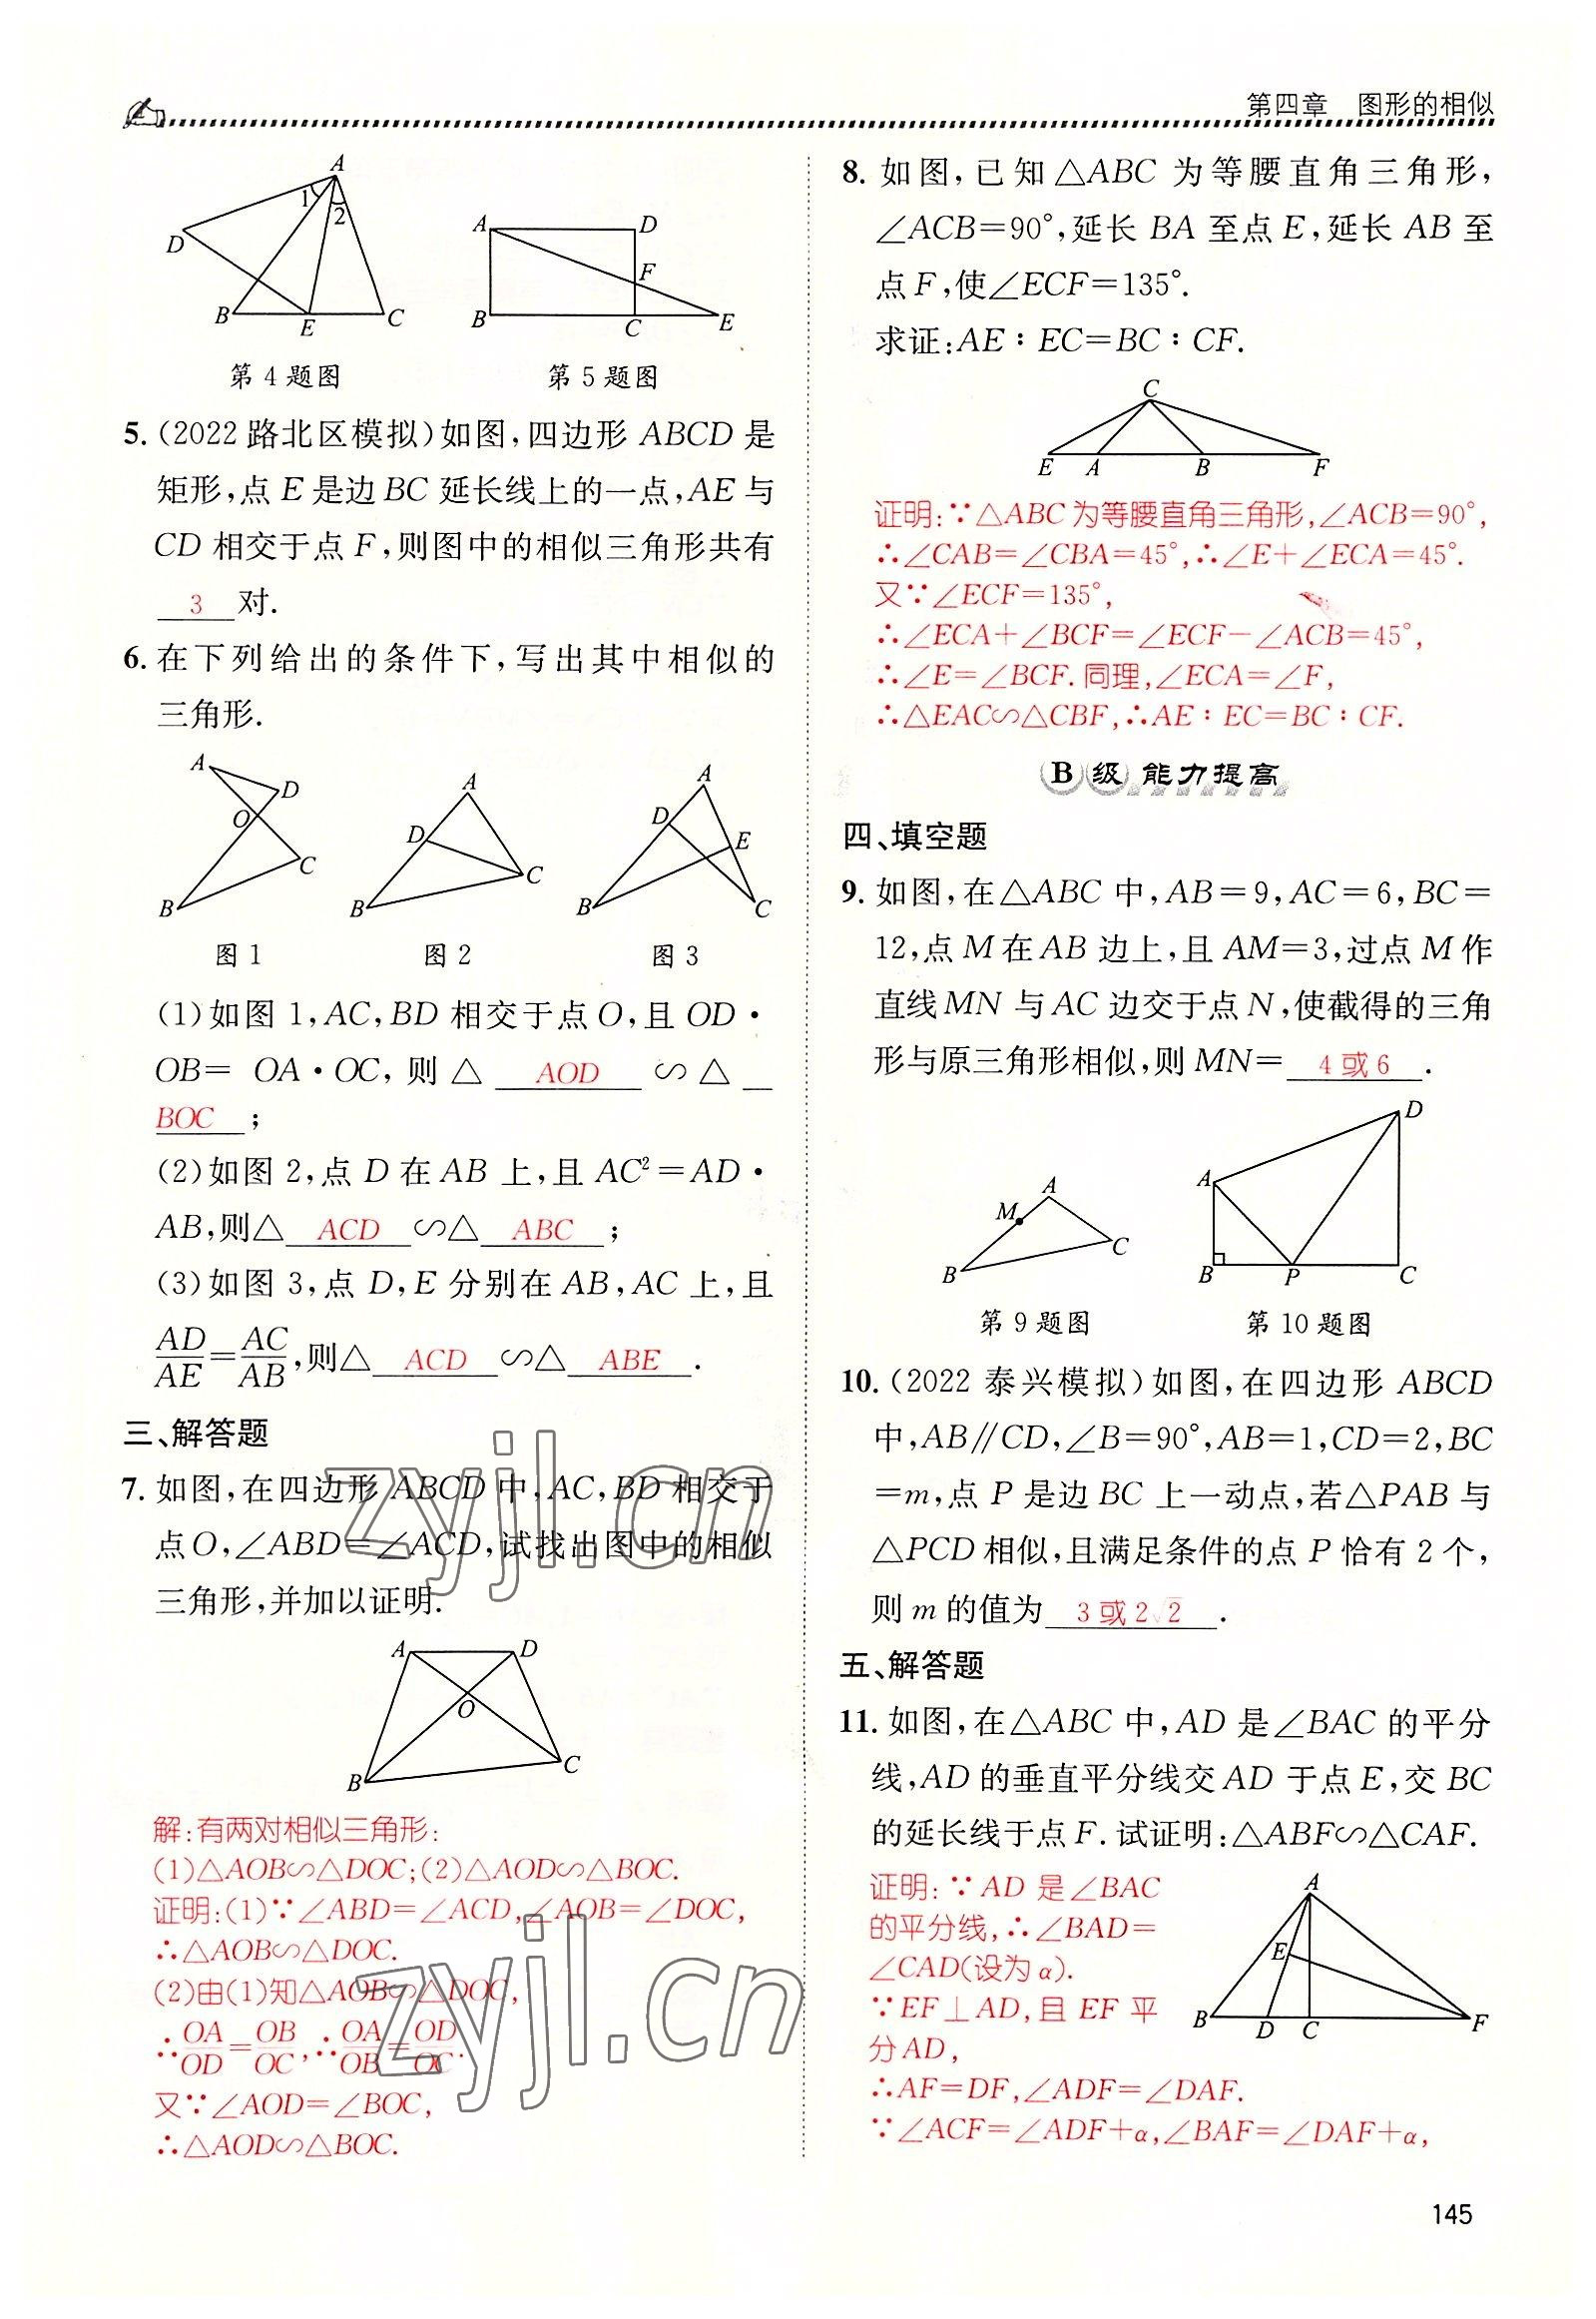 第四章 图形的相似
A
1
2
D
B
E
C
第4题图
A
D
F
B
C
E
第5题图
5.(2022路北区模拟)如图,四边形ABCD是
矩形,点E是边BC延长线上的一点,AE与
CD相交于点F,则图中的相似三角形共有
3 对.
6.在下列给出的条件下,写出其中相似的
三角形.
A
D
O
C
B
图1
A
D
C
B
图2
A
D
E
B
C
图3
(1)如图1,AC,BD相交于点O,且OD·
OB= OA·OC,则△ AOD ∽△
BOC ;
(2)如图2,点D在AB上,且AC²=AD·
AB,则△ ACD ∽△ ABC ;
(3)如图3,点D,E分别在AB,AC上,且
AD/AE=AC/AB,则△ ACD ∽△ ABE .
三、解答题
7.如图,在四边形ABCD中,AC,BD相交于
点O,∠ABD=∠ACD,试找出图中的相似
三角形,并加以证明.
A
D
O
B
C
解:有两对相似三角形:
(1)△AOB∽△DOC;(2)△AOD∽△BOC.
证明:(1)∵∠ABD=∠ACD,∠AOB=∠DOC,
∴△AOB∽△DOC.
(2)由(1)知△AOB∽△DOC,
∴OA/OD=OB/OC,∴OA/OB=OD/OC.
又∵∠AOD=∠BOC,
∴△AOD∽△BOC.
8.如图,已知△ABC为等腰直角三角形,
∠ACB=90°,延长BA至点E,延长AB至
点F,使∠ECF=135°.
求证:AE∶EC=BC∶CF.
C
E
A
B
F
证明:∵△ABC为等腰直角三角形,∠ACB=90°,
∴∠CAB=∠CBA=45°,∴∠E+∠ECA=45°.
又∵∠ECF=135°,
∴∠ECA+∠BCF=∠ECF-∠ACB=45°,
∴∠E=∠BCF.同理,∠ECA=∠F,
∴△EAC∽△CBF,∴AE∶EC=BC∶CF.
B级 能力提高
四、填空题
9.如图,在△ABC中,AB=9,AC=6,BC=
12,点M在AB边上,且AM=3,过点M作
直线MN与AC边交于点N,使截得的三角
形与原三角形相似,则MN= 4或6 .
A
M
B
C
第9题图
D
A
B
P
C
第10题图
10.(2022泰兴模拟)如图,在四边形ABCD
中,AB∥CD,∠B=90°,AB=1,CD=2,BC
=m,点P是边BC上一动点,若△PAB与
△PCD相似,且满足条件的点P恰有2个,
则m的值为 3或2√2 .
五、解答题
11.如图,在△ABC中,AD是∠BAC的平分
线,AD的垂直平分线交AD于点E,交BC
的延长线于点F.试证明:△ABF∽△CAF.
证明:∵AD是∠BAC
的平分线,∴∠BAD=
∠CAD(设为α).
∵EF⊥AD,且EF平
分AD,
∴AF=DF,∠ADF=∠DAF.
∵∠ACF=∠ADF+α,∠BAF=∠DAF+α,
A
E
B
D
C
F
zyjl.cn
zyjl.cn
145